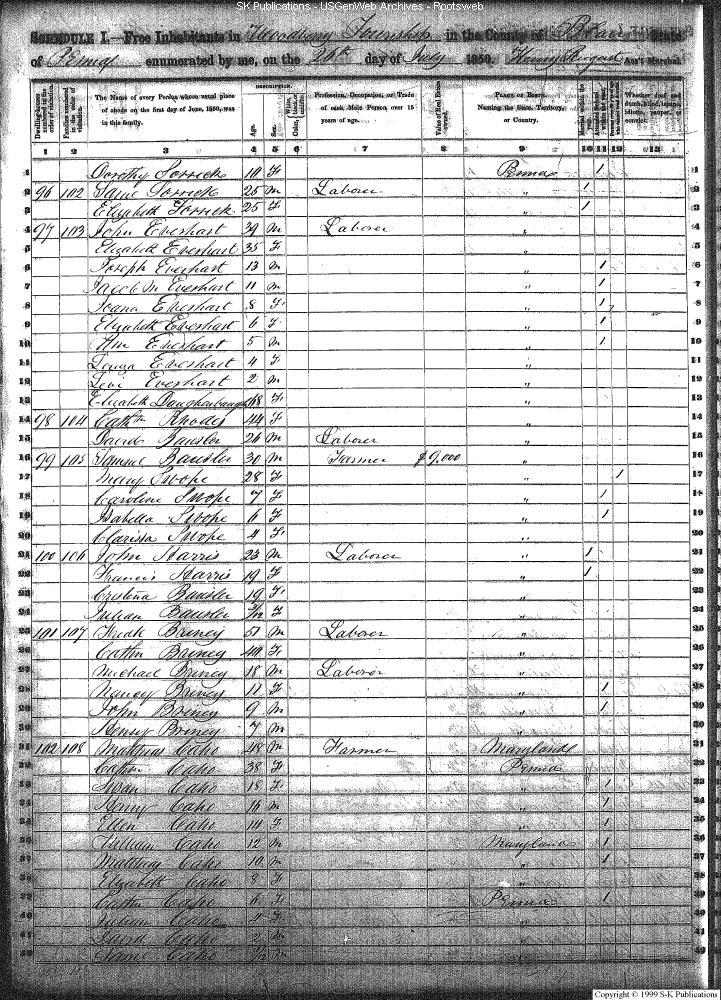 SK Publications - USGenWeb Archives - Rootsweb
SCHEDULE I.—Free Inhabitants in Woodberry Township in the County of Blair State
of Penna enumerated by me, on the 26th day of July 1850. Henry Ass't Marshal.
Dwelling-houses numbered in the order of visitation.
Families numbered in the order of visitation.
The Name of every Person whose usual place of abode on the first day of June, 1850, was in this family.
DESCRIPTION.
Age.
Sex.
White, Color,
Profession, Occupation, or Trade of each Male Person over 15 years of age.
Value of Real Estate owned.
PLACE OF BIRTH. Naming the State, Territory, or Country.
Married within the year.
Whether deaf and dumb, blind, insane, idiotic, pauper, or convict.
1 2 3 4 5 6 7 8 9 10 11 12 13
1 Dorothy Sorrick 10 F Penna 1 1
2 96 102 Sorrick 25 M Laborer " 1 2
3 Elizabeth Sorrick 25 F " 1 3
4 97 103 John Everhart 39 M Laborer " 4
5 Elizabeth Everhart 35 F " 5
6 Joseph Everhart 13 M " 1 6
7 Jacob M Everhart 11 M " 1 7
8 Everhart 8 F " 1 8
9 Elizabeth Everhart 6 F " 1 9
10 Wm Everhart 5 M " 1 10
11 Everhart 4 F " 11
12 Levi Everhart 2 M " 12
13 Elizabeth Daughenbaugh 48 F " 13
14 98 104 Cathn Rhodes 44 F " 14
15 David Bausler 26 M Laborer " 15
16 99 105 Samuel Bausler 30 M Farmer $9,000 " 16
17 Mary Swope 28 F " 1 17
18 Caroline Swope 7 F " 1 18
19 Isabella Swope 6 F " 1 19
20 Clarissa Swope 4 F " 20
21 100 106 John Harris 23 M Laborer " 1 21
22 Francis Harris 19 F " 1 22
23 Cristena Bausler 19 F " 23
24 Julian Bausler F " 24
25 101 107 Fredk Briney 51 M Laborer " 25
26 Cathn Briney F " 26
27 Michael Briney 18 M Laborer " 27
28 Nancy Briney 11 F " 1 28
29 John Briney 9 M " 1 29
30 Henry Briney 7 M " 30
31 102 108 Matthias Caho 48 M Farmer Maryland 31
32 Cathn Caho 38 F Penna 32
33 Susan Caho 18 F " 1 33
34 Henry Caho 16 M " 1 34
35 Ellen Caho 14 F " 1 35
36 William Caho 12 M Maryland 1 36
37 Matthias Caho 10 M " 1 37
38 Elizabeth Caho 8 F " 38
39 Cathn Caho 6 F Penna 1 39
40 Julian Caho 4 F " 40
41 David Caho 2 M " 41
42 Caho M " 42
Copyright © 1999 S-K Publications